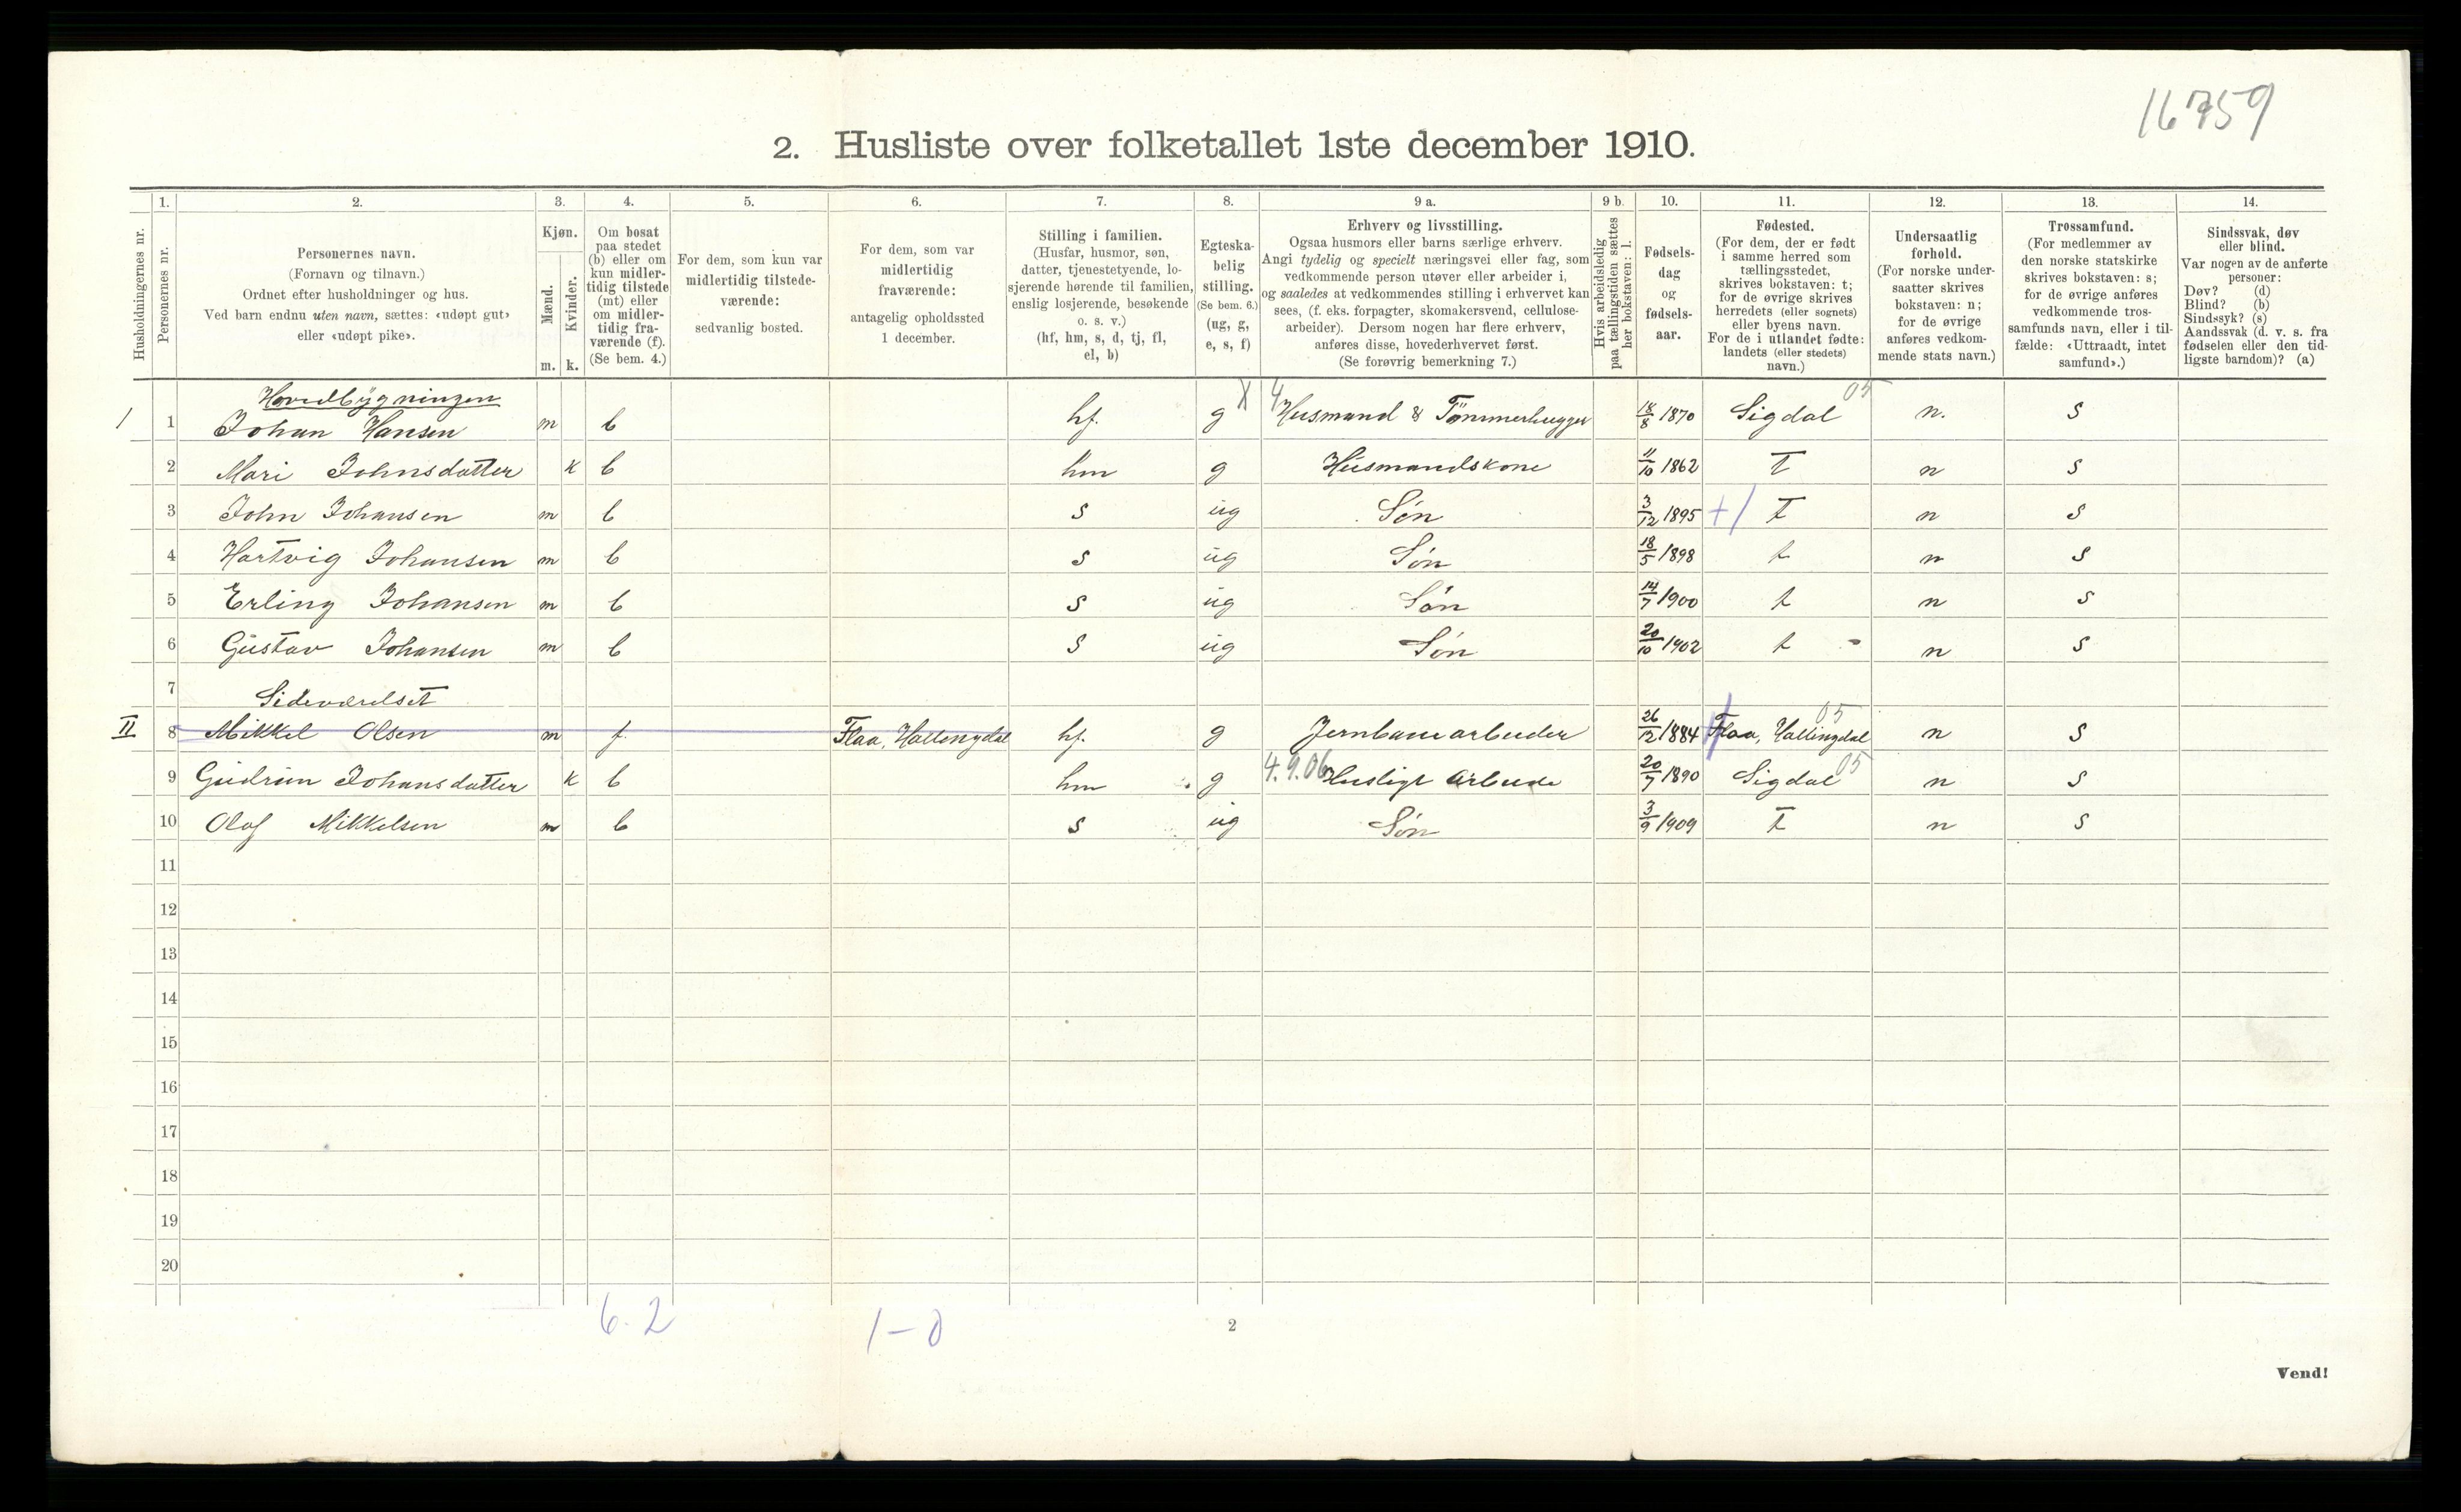 16759
2. Husliste over folketallet 1ste december 1910.
Husholdningernes nr.
1.
Personernes nr.
2.
Personernes navn.
(Fornavn og tilnavn.)
Ordnet efter husholdninger og hus.
Ved barn endnu uten navn, sættes: «udøpt gut»
eller «udøpt pike».
3.
Kjøn.
Mænd.
m.
Kvinder.
k.
4.
Om bosat
paa stedet
(b) eller om
kun midler-
tidig tilstede
(mt) eller
om midler-
tidig fra-
værende (f).
(Se bem. 4.)
5.
For dem, som kun var
midlertidig tilstede-
værende:
sedvanlig bosted.
6.
For dem, som var
midlertidig
fraværende:
antagelig opholdssted
1 december.
7.
Stilling i familien.
(Husfar, husmor, søn,
datter, tjenestetyende, lo-
sjerende hørende til familien,
enslig losjerende, besøkende
o. s. v.)
(hf, hm, s, d, tj, fl,
el, b)
8.
Egteska-
belig
stilling.
(Se bem. 6.)
(ug, g,
e, s, f)
9 a.
Erhverv og livsstilling.
Ogsaa husmors eller barns særlige erhverv.
Angi tydelig og specielt næringsvei eller fag, som
vedkommende person utøver eller arbeider i,
og saaledes at vedkommendes stilling i erhvervet kan
sees, (f. eks. forpagter, skomakersvend, cellulose-
arbeider). Dersom nogen har flere erhverv,
anføres disse, hovederhvervet først.
(Se forøvrig bemerkning 7.)
9 b.
Hvis arbeidsledig
paa tællingstiden sættes
her bokstaven: l.
10.
Fødsels-
dag
og
fødsels-
aar.
11.
Fødested.
(For dem, der er født
i samme herred som
tællingsstedet,
skrives bokstaven: t;
for de øvrige skrives
herredets (eller sognets)
eller byens navn.
For de i utlandet fødte:
landets (eller stedets)
navn.)
12.
Undersaatlig
forhold.
(For norske under-
saatter skrives
bokstaven: n;
for de øvrige
anføres vedkom-
mende stats navn.)
13.
Trossamfund.
(For medlemmer av
den norske statskirke
skrives bokstaven: s;
for de øvrige anføres
vedkommende tros-
samfunds navn, eller i til-
fælde: «Uttraadt, intet
samfund».)
14.
Sindssvak, døv
eller blind.
Var nogen av de anførte
personer:
Døv? (d)
Blind? (b)
Sindssyk? (s)
Aandssvak (d. v. s. fra
fødselen eller den tid-
ligste barndom)? (a)
Hovedbygningen
1 1 Johan Hansen m b hf. g X 4 Husmand & Tømmerhugger 18/8 1870 Sigdal 05 n. s
2 Mari Johnsdatter k b hm g Husmandskone 11/10 1862 t n s
3 John Johansen m b s ug Søn 3/12 1895 +/ t n s
4 Hartvig Johansen m b s ug Søn 18/5 1898 t n s
5 Erling Johansen m b s ug Søn 14/7 1900 t n s
6 Gustav Johansen m b s ug Søn 20/10 1902 t n s
7 Sideværelset
II 8 Mikkel Olsen m f Flaa, Hallingdal hf. g Jernbanearbeider 26/12 1884 Flaa, Hallingdal 05 n s
9 Gudrun Johansdatter k b hm g 4.9.06 Husligt arbeide 20/7 1890 Sigdal 05 n s
10 Olaf Mikkelsen m b s ug Søn 3/9 1909 t n s
11
12
13
14
15
16
17
18
19
20
6-2
1-0
2
Vend!